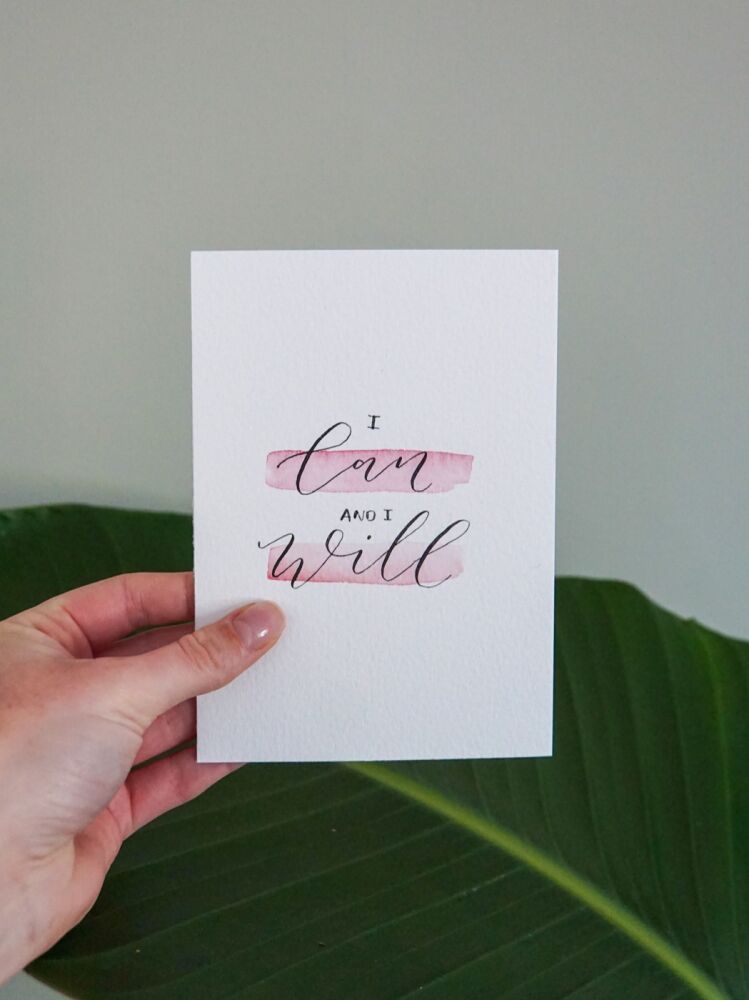 I
can
AND I
will